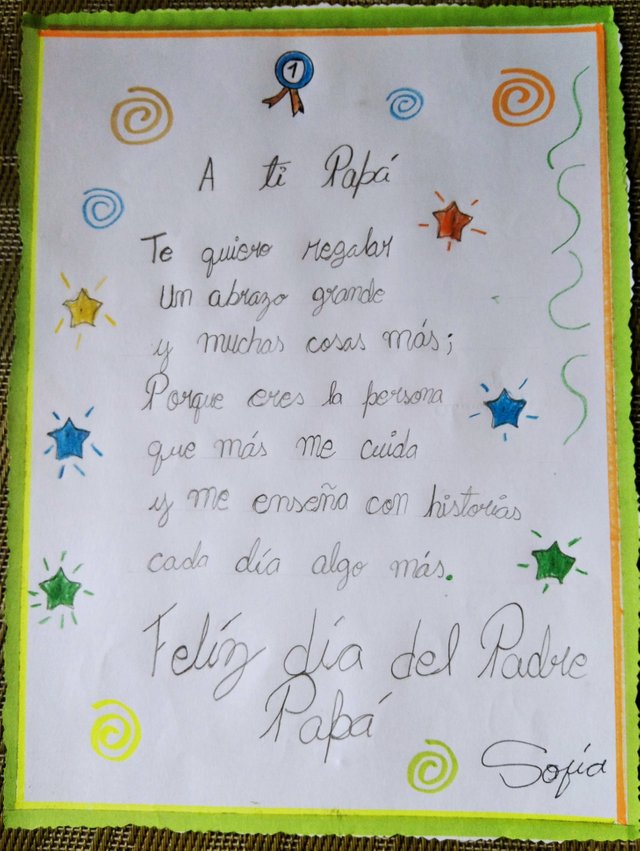 1
A ti Papá
Te quiero regalar
un abrazo grande
y muchas cosas más;
Porque eres la persona
que más me cuida
y me enseña con historias
cada día algo más.
Felíz día del Padre
Papá
Sofía